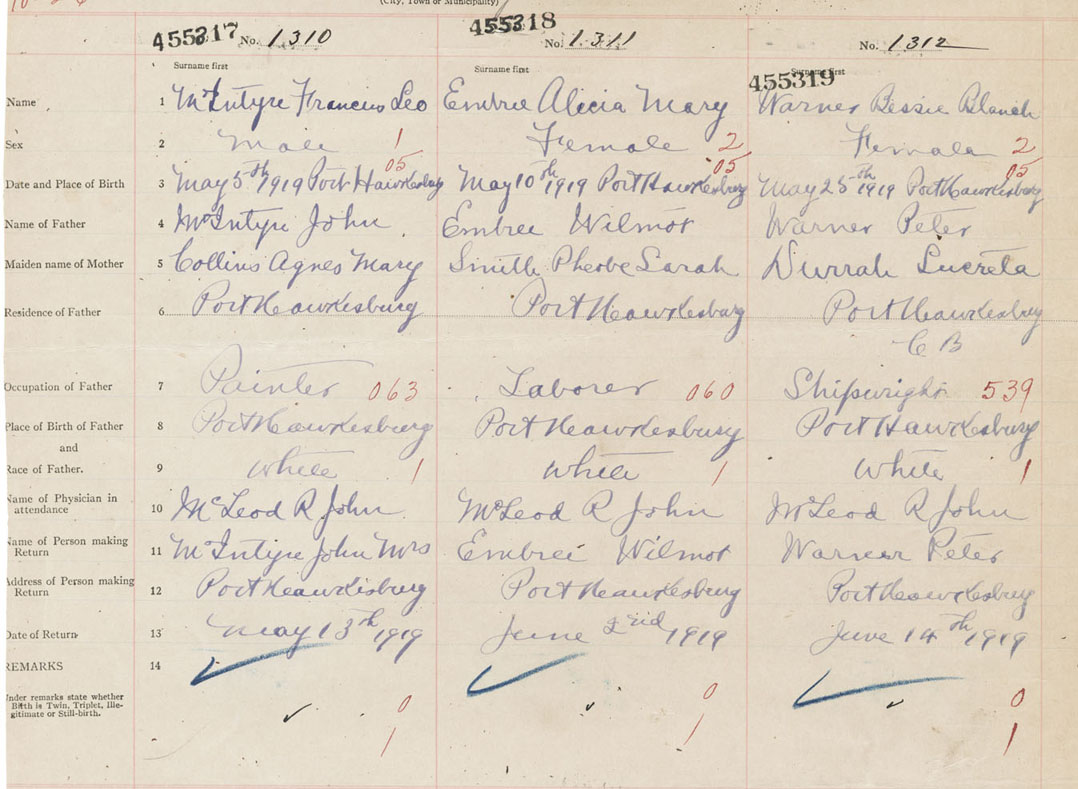 (City, Town or Municipality)
455317 No. 1310 455318 No. 1311 455319 No. 1312
Surname first Surname first Surname first
Name 1 McIntyre Francis Leo Embree Alicia Mary Warner Bessie Blanch
Sex 2 Male 1 Female 2 Female 2
05 05 05
Date and Place of Birth 3 May 5th 1919 Port Hawkesbury May 10th 1919 Port Hawkesbury May 25th 1919 Port Hawkesbury
Name of Father 4 McIntyre John Embree Wilmot Warner Peter
Maiden name of Mother 5 Collins Agnes Mary Smith Pheobe Sarah Durrah Lucreta
Residence of Father 6 Port Hawkesburg Port Hawkesbury Port Hawkesbury
C B
Occupation of Father 7 Painter 063 Laborer 060 Shipwright 539
Place of Birth of Father 8 Port Hawkesburg Port Hawkesbury Port Hawkesbury
and
Race of Father. 9 White 1 White 1 White 1
Name of Physician in
attendance 10 McLeod R John McLeod R John McLeod R John
Name of Person making
Return 11 McIntyre John Mrs Embree Wilmot Warner Peter
Address of Person making
Return 12 Port Hawkesburg Port Hawkesburg Port Hawkesburg
Date of Return 13 May 13th 1919 June 2nd 1919 June 14th 1919
REMARKS 14
Under remarks state whether
Birth is Twin, Triplet, Ille-
gitimate or Still-birth.
0 0 0
1 1 1